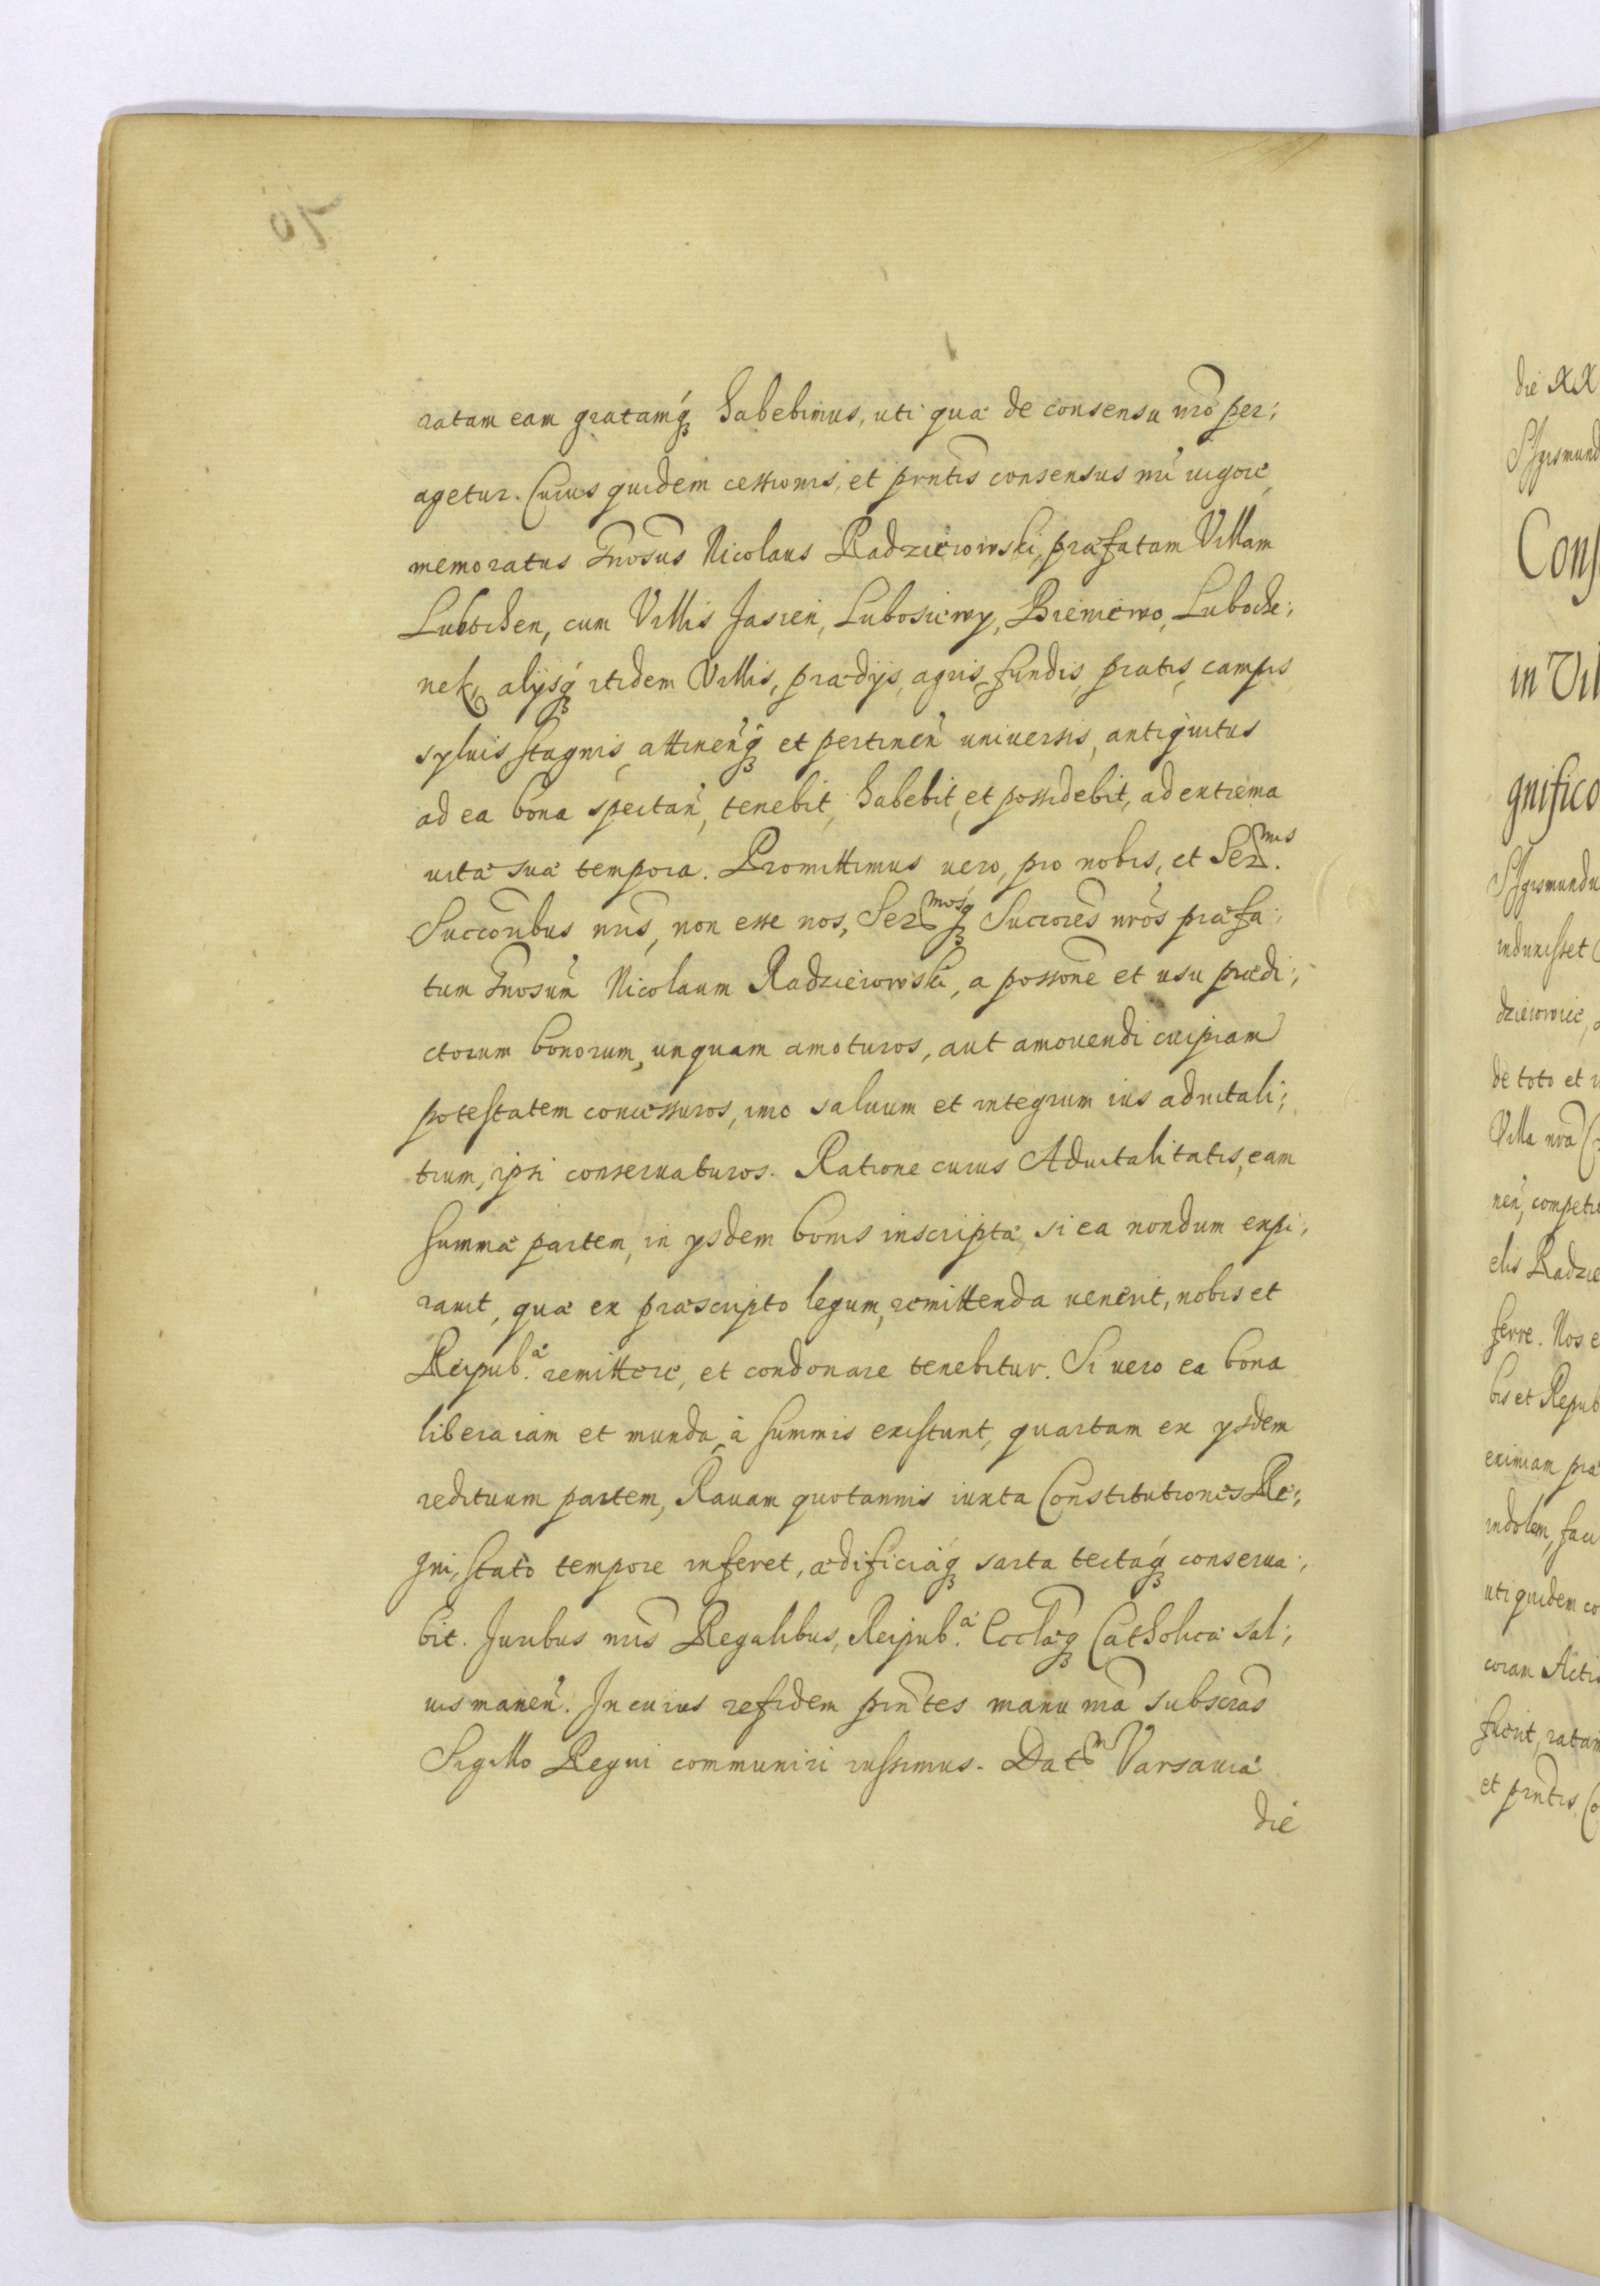 ratam eam gratamq́ꝫ habebimus, uti quæ de consensu nrō per;
agetur. Cuius quidem cessionis, et prntis consensus nri uigore,
memoratus Gnosus Nicolaus Radzieiowski, præfatam Villam
Lubochen, cum Villis Jasien, Lubosiewy, Brenicwo, Luboche;
nek, alijsq́ꝫ itidem Villis, prædijs, agris, fundis, pratis, campis
syluis stagnis, attineñq́ꝫ et pertineñ uniuersis, antiquitus
ad ea bona spectañ, tenebit, habebit, et possidebit, ad extrema
uitæ suæ tempora. Promittimus uero, pro nobis, et Ser.mis
Succoribus nris, non esse nos, Sermosq́ꝫ Succores nros præfa;
tum Gnosum Nicolaum Radzieiowski, a possone et usu prædi;
ctorum bonorum, unquam amoturos, aut amouendi cuipiam
potestatem concessuros, imo saluum et integrum ius aduitali;
tium, ipsi conseruaturos. Ratione cuius Aduitalitatis, eam
summæ partem, in ysdem bonis inscriptæ, si ea nondum expi;
rauit, quæ ex præscripto legum, remittenda uenerit, nobis et
Reipub.æ remittere, et condonare tenebitur. Si uero ea bona
libera iam et munda, à summis existunt, quartam ex ysdem
redituum partem, Rauam quotannis iuxta Constitutiones Re;
gni, stato tempore inferet, ædificiaq́ꝫ sarta tectaq́ꝫ conserua;
bit. Juribus nris Regalibus, Reipub.æ Ecclæq́ꝫ Catholicæ sal;
uis maneñ. In cuius rei fidem prntes manu nra subscras
Sigillo Regni communiri iussimus. Datm Varsauiæ
die